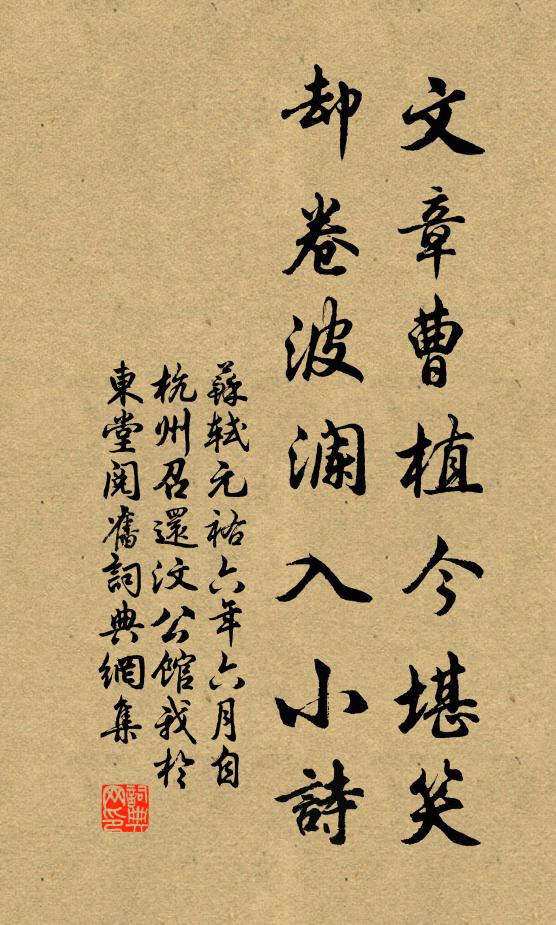 文章曹植今堪笑
却卷波澜入小詩
蘇軾元祐六年六月自
杭州召還汶公館我於
東堂閱舊詞典網集
詞典網印